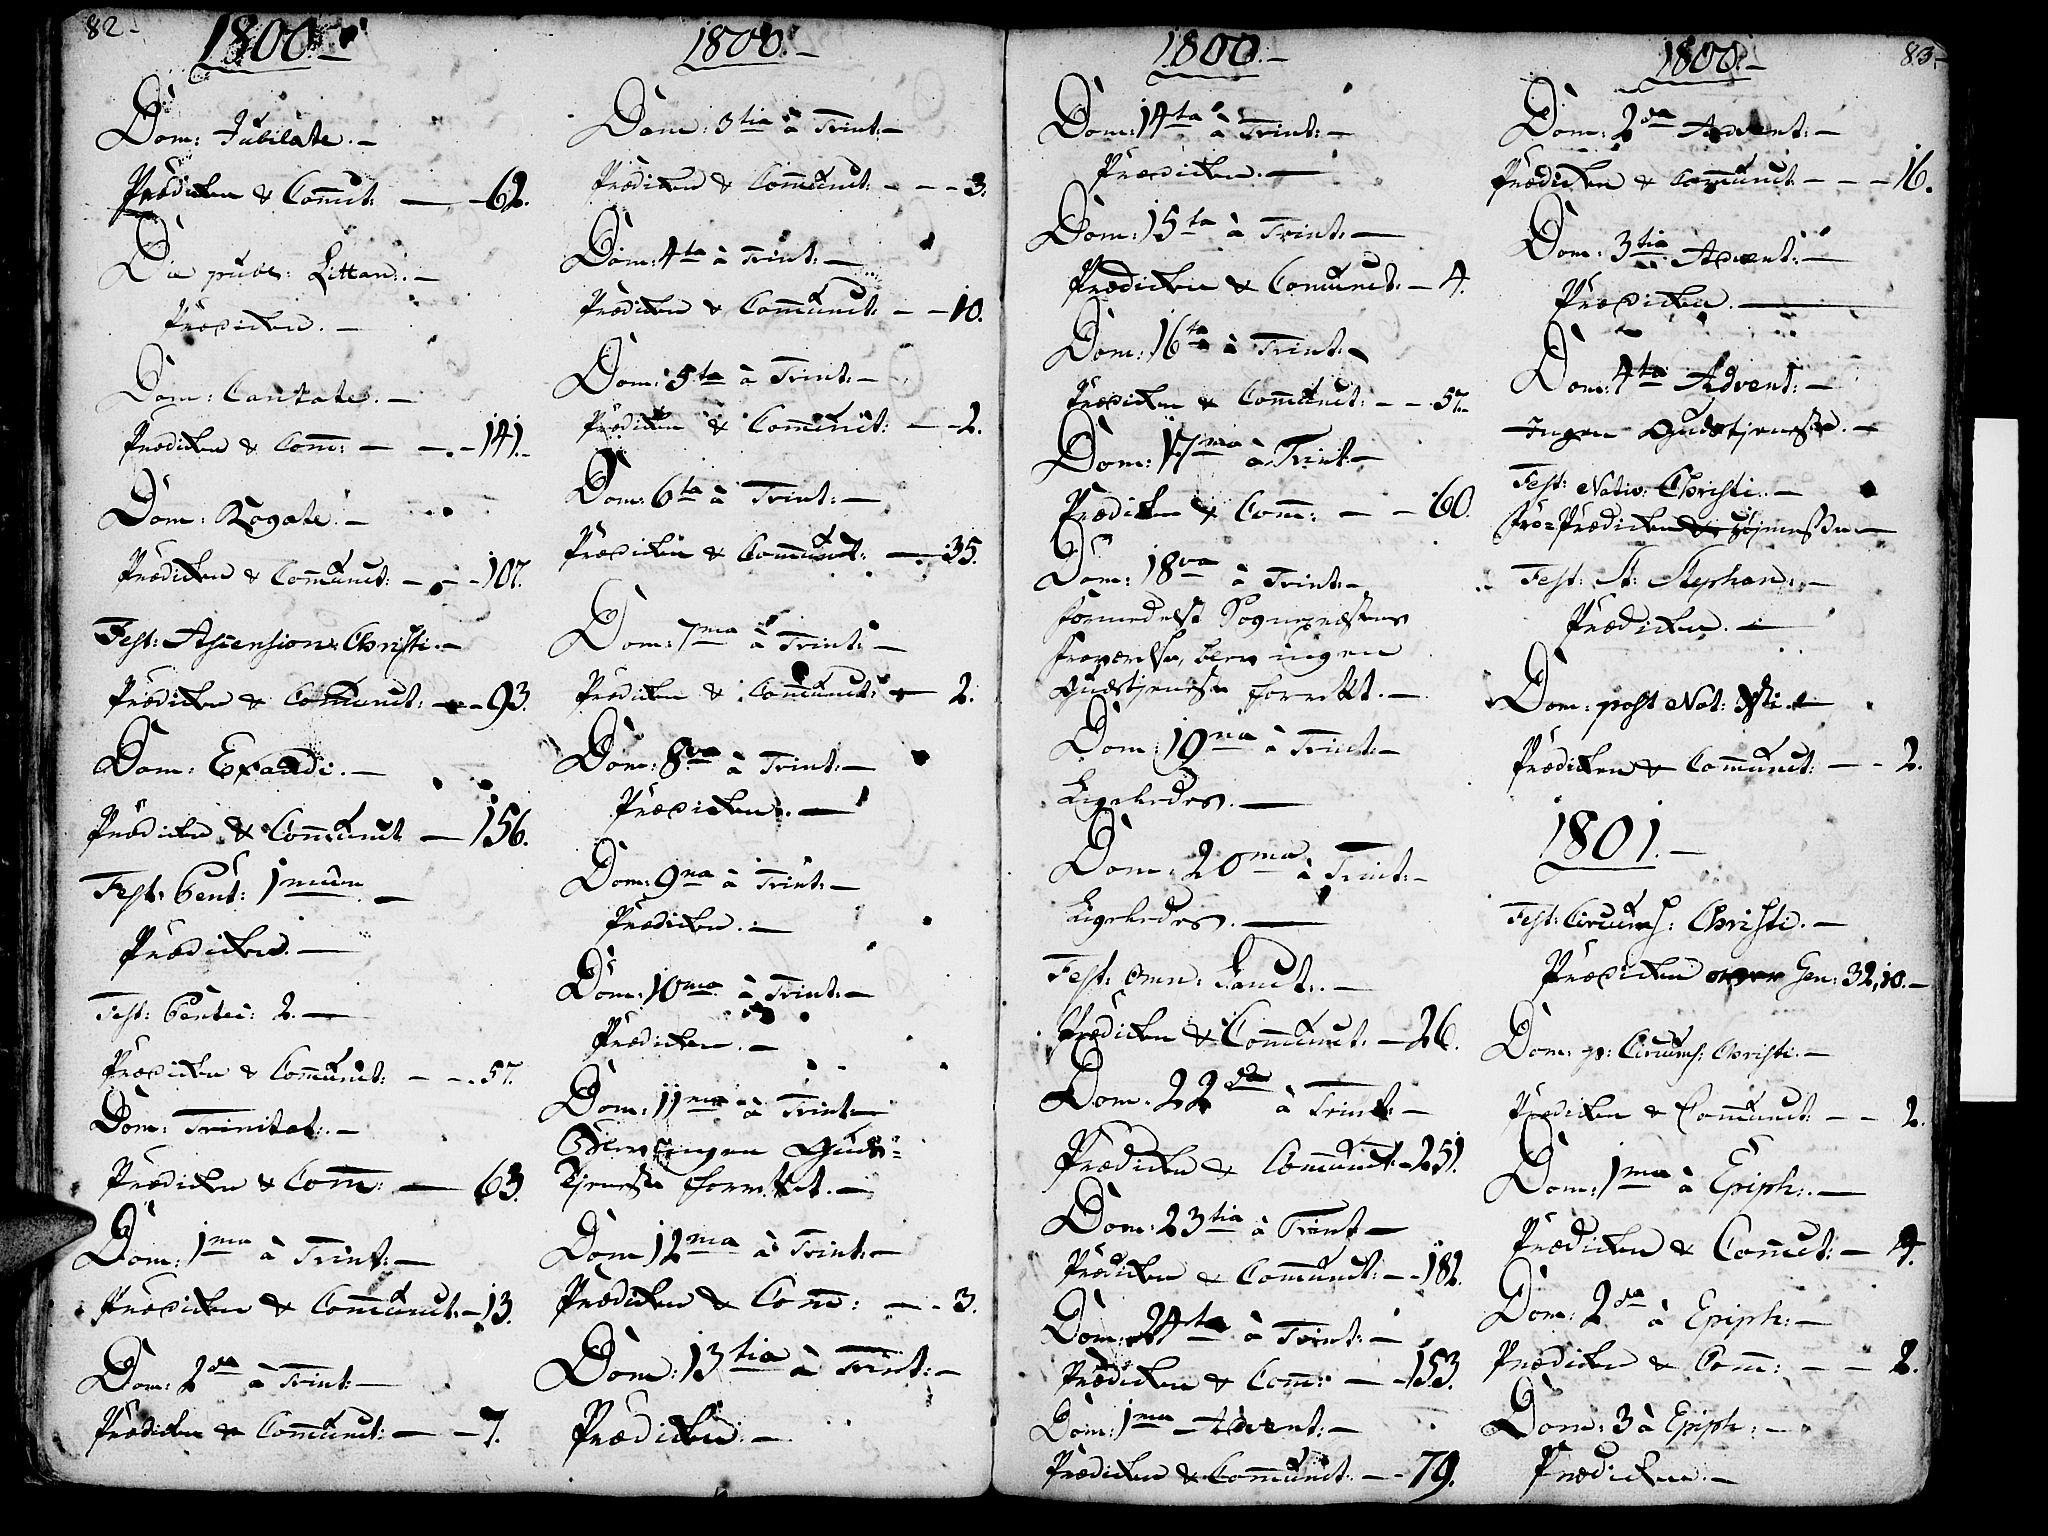 82.
1800.
Dom: Jubilate.
Prædiken & Comut: — 62.
Die publ: Littan:
Prædiken.
Dom: Cantate.
Prædiken & Com: — 141.
Dom: Rogate.
Prædiken & Communict: — 107.
Fest: Ascension: Christi.
Prædiken & Communict: — 93.
Dom: Exaudi.
Prædiken & Communict — 156.
Fest: Pent: 1mum.
Prædiken.
Fest: Pentec: 2.
Prædiken & Communict: — 57.
Dom: Trinitat:
Prædiken & Com: — 63.
Dom: 1ma à Trinit:
Prædiken & Communict. — 13.
Dom: 2da à Trinit:
Prædiken & Communict: — 7.
1800.
Dom: 3tia à Trinit:
Prædiken & Communict: — 3.
Dom: 4ta à Trinit:
Prædiken & Communict: — 10.
Dom: 5ta à Trinit:
Prædiken & Communict: — 2.
Dom: 6ta à Trinit:
Prædiken & Communict: — 35.
Dom: 7ma à Trinit:
Prædiken & Communict: — 2.
Dom: 8va à Trinit:
Prædiken.
Dom: 9na à Trinit:
Prædiken.
Dom: 10ma à Trinit:
Prædiken.
Dom: 11ma à Trinit:
Blev ingen Guds-
Tjeneste forrettet.
Dom 12ma à Trinit:
Prædiken & Com: — 3.
Dom: 13tia à Trinit:
Prædiken.
1800.
Dom: 14ta à Trinit:
Prædiken.
Dom: 15ta à Trinit:
Prædiken & Comunict: — 4.
Dom: 16ta à Trinit:
Prædiken & Communict: — 57.
Dom: 17ma à Trinit:
Prædiken & Com: — 60.
Dom: 18va à Trinit:
Formedelst Sognepræstens
Fraværelse, blev ingen
Gudstjeneste forrettt.
Dom: 19na à Trinit:
Ligeledes.
Dom: 20ma à Trinit:
Ligeledes.
Fest: Omn: Sanct:
Prædiken & Communict: — 26.
Dom: 22da à Trinit:
Prædiken & Communict: — 251.
Dom: 23tia à Trinit
Prædiken & Communict: — 182.
Dom: 24ta à Trinit:
Prædiken & Com: — 153.
Dom: 1ma Advent:
Prædiken & Communict: — 79.
1800.
83.
Dom: 2da Advent:
Prædiken & Communict — 16.
Dom: 3tia Advent:
Prædiken.
Dom: 4ta Advent:
Ingen Gudstjeneste.
Fest: Nativ: Christi.
Fro-Prædiken & Høimesse
Fest: St: Stephan:
Prædiken.
Dom: post Nat: Xsti.
Prædiken & Communict: — 2.
1801.
Fest: Circumс: Christi.
Prædiken over Gen: 32,10.
Dom: p: Circumс: Christi.
Prædiken & Communict: — 2.
Dom: 1ma à Epiph:
Prædiken & Comut: — 4.
Dom: 2da à Epiph:
Prædiken & Com: — 2.
Dom: 3 à Epiph:
Prædiken.